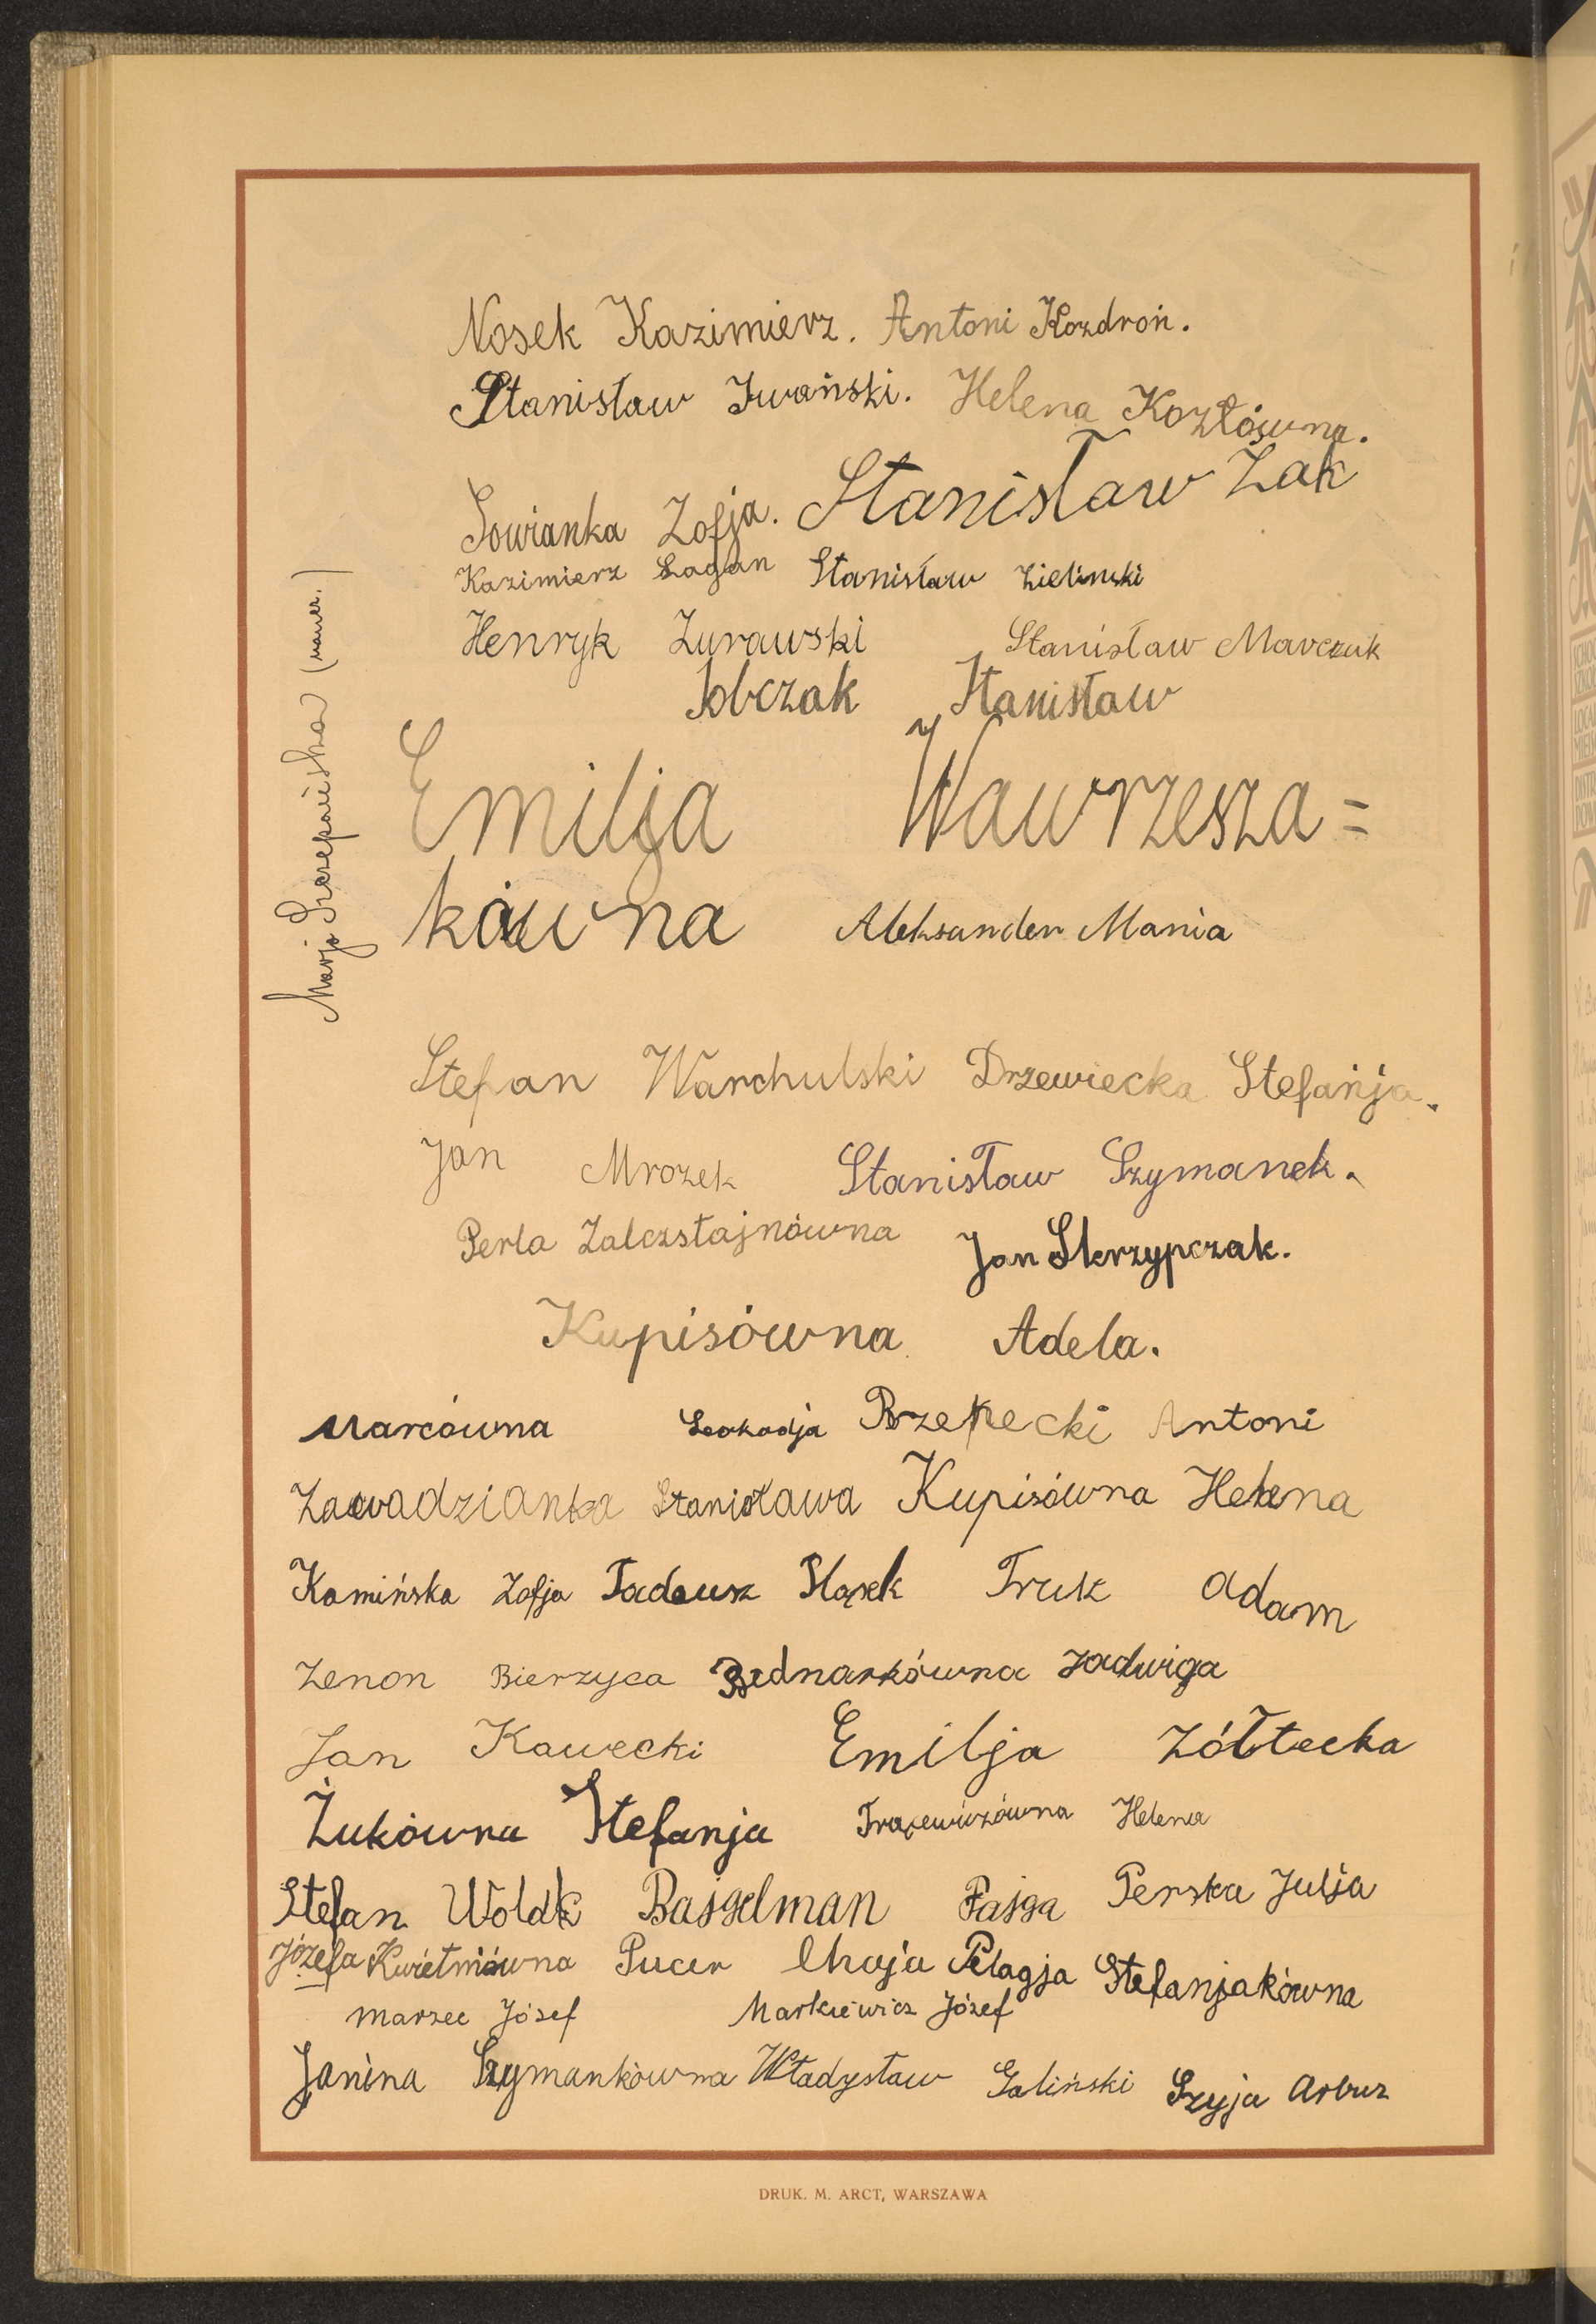 Nosek Kazimierz. Antoni Kozdroń.
Stanisław Iwański. Helena Kozłówna.
Sowianka Zofja. Stanisław Żak
Kazimierz Łagan Stanisław Zieliński
Henryk Żurawski Stanisław Marczuk
Sobczak Stanisław
Emilja Wawrzesza=
kówna Aleksander Mania
Marja Szczepańska (nauc.)
Stefan Warchulski Drzewiecka Stefanja.
Jan Mrozek Stanisław Szymanek.
Perla Zalczstajnówna Jan Skrzypczak.
Kupisówna Adela.
Marcówna Leokadja Brzepecki Antoni
Zawadzianka Stanisława Kupisówna Helena
Kamińska Zofja Tadeusz Ptasek Truk Adam
Zenon Bierzyca Bednarkówna Jadwiga
Jan Kawecki Emilja Żółtecka
Żukówna Stefanja Helena
Stefan Wołek Bajgelman Fajga Perska Julja
Józefa Kwietniówna Pucer Chaja Pelagja Stefanjakówna
Marzec Józef Markiewicz Józef
Janina Szymankówna Władysław Galiński Szyja Arbuz
DRUK. M. ARCT, WARSZAWA